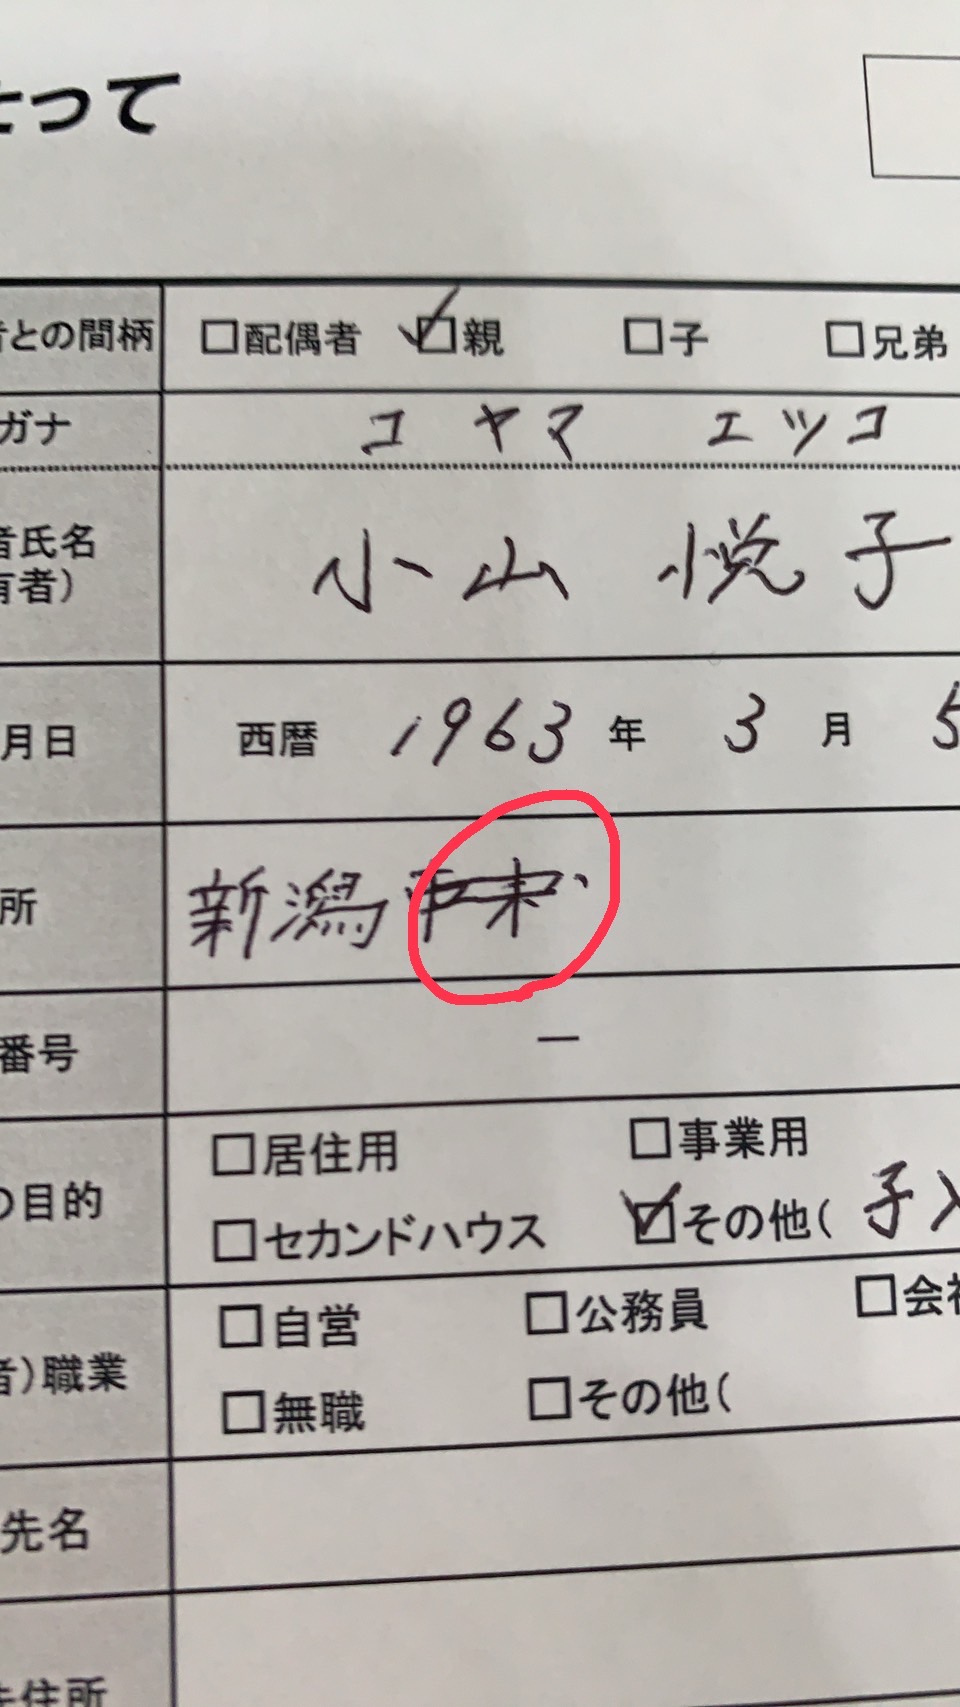 たって
者との間柄 □配偶者 ☑親 □子 □兄弟
ガナ コヤマ エツコ
者氏名 小山 悦子
有者）
月日 西暦 1963 年 3 月 5
所 新潟
番号 ー
の目的 □居住用 □事業用
□セカンドハウス ☑その他( 子入
者)職業 □自営 □公務員 □会社
□無職 □その他(
先名
住所